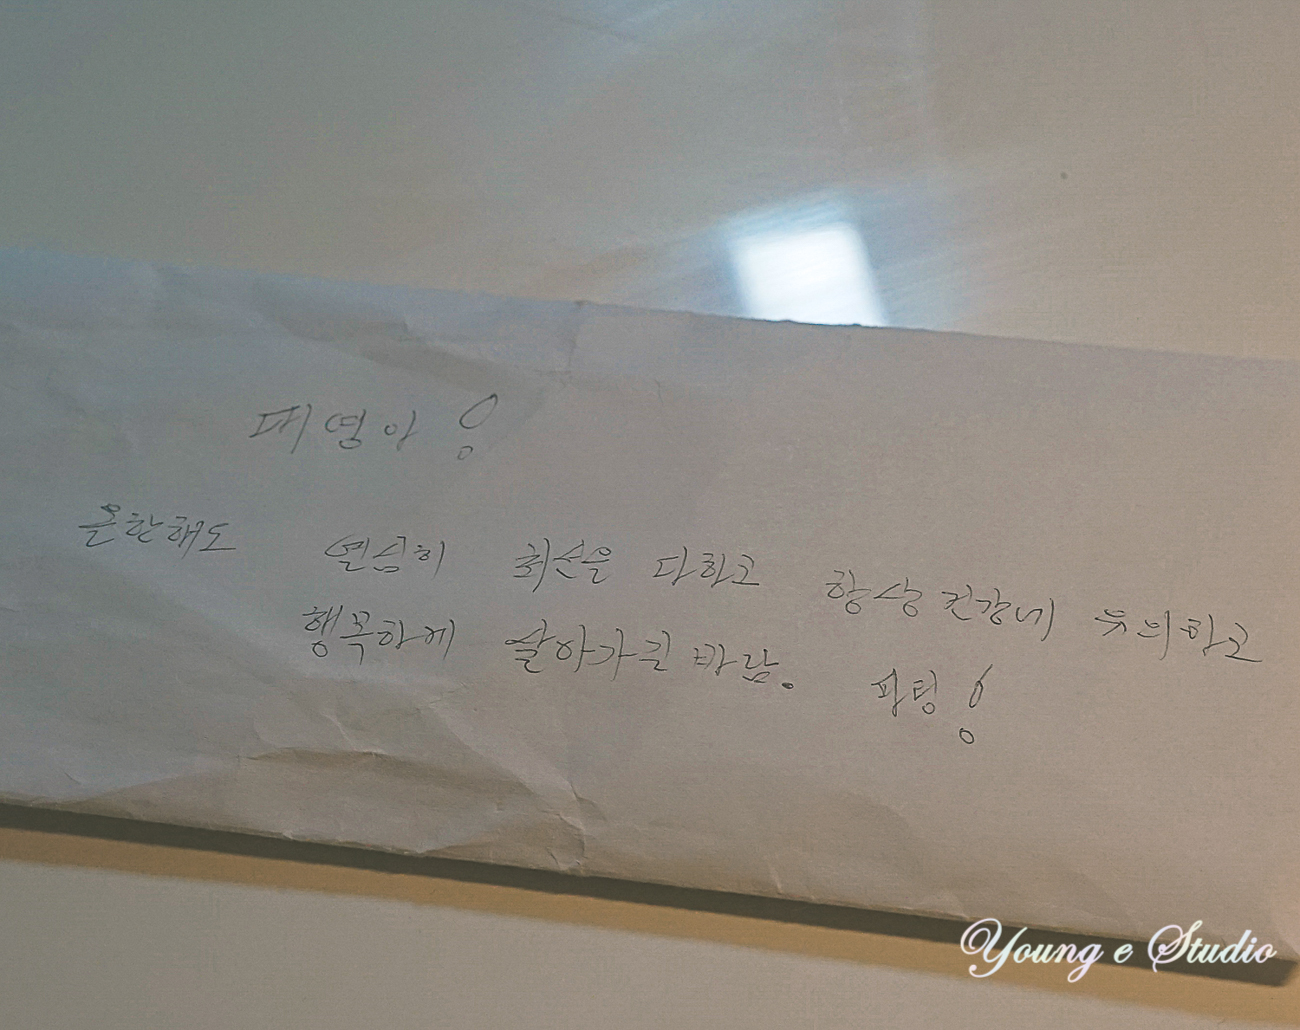 대영아!
올한해도 열심히 최선을 다하고 항상 건강에 유의하고
행복하게 살아가길 바람. 파팅!
Young e Studio